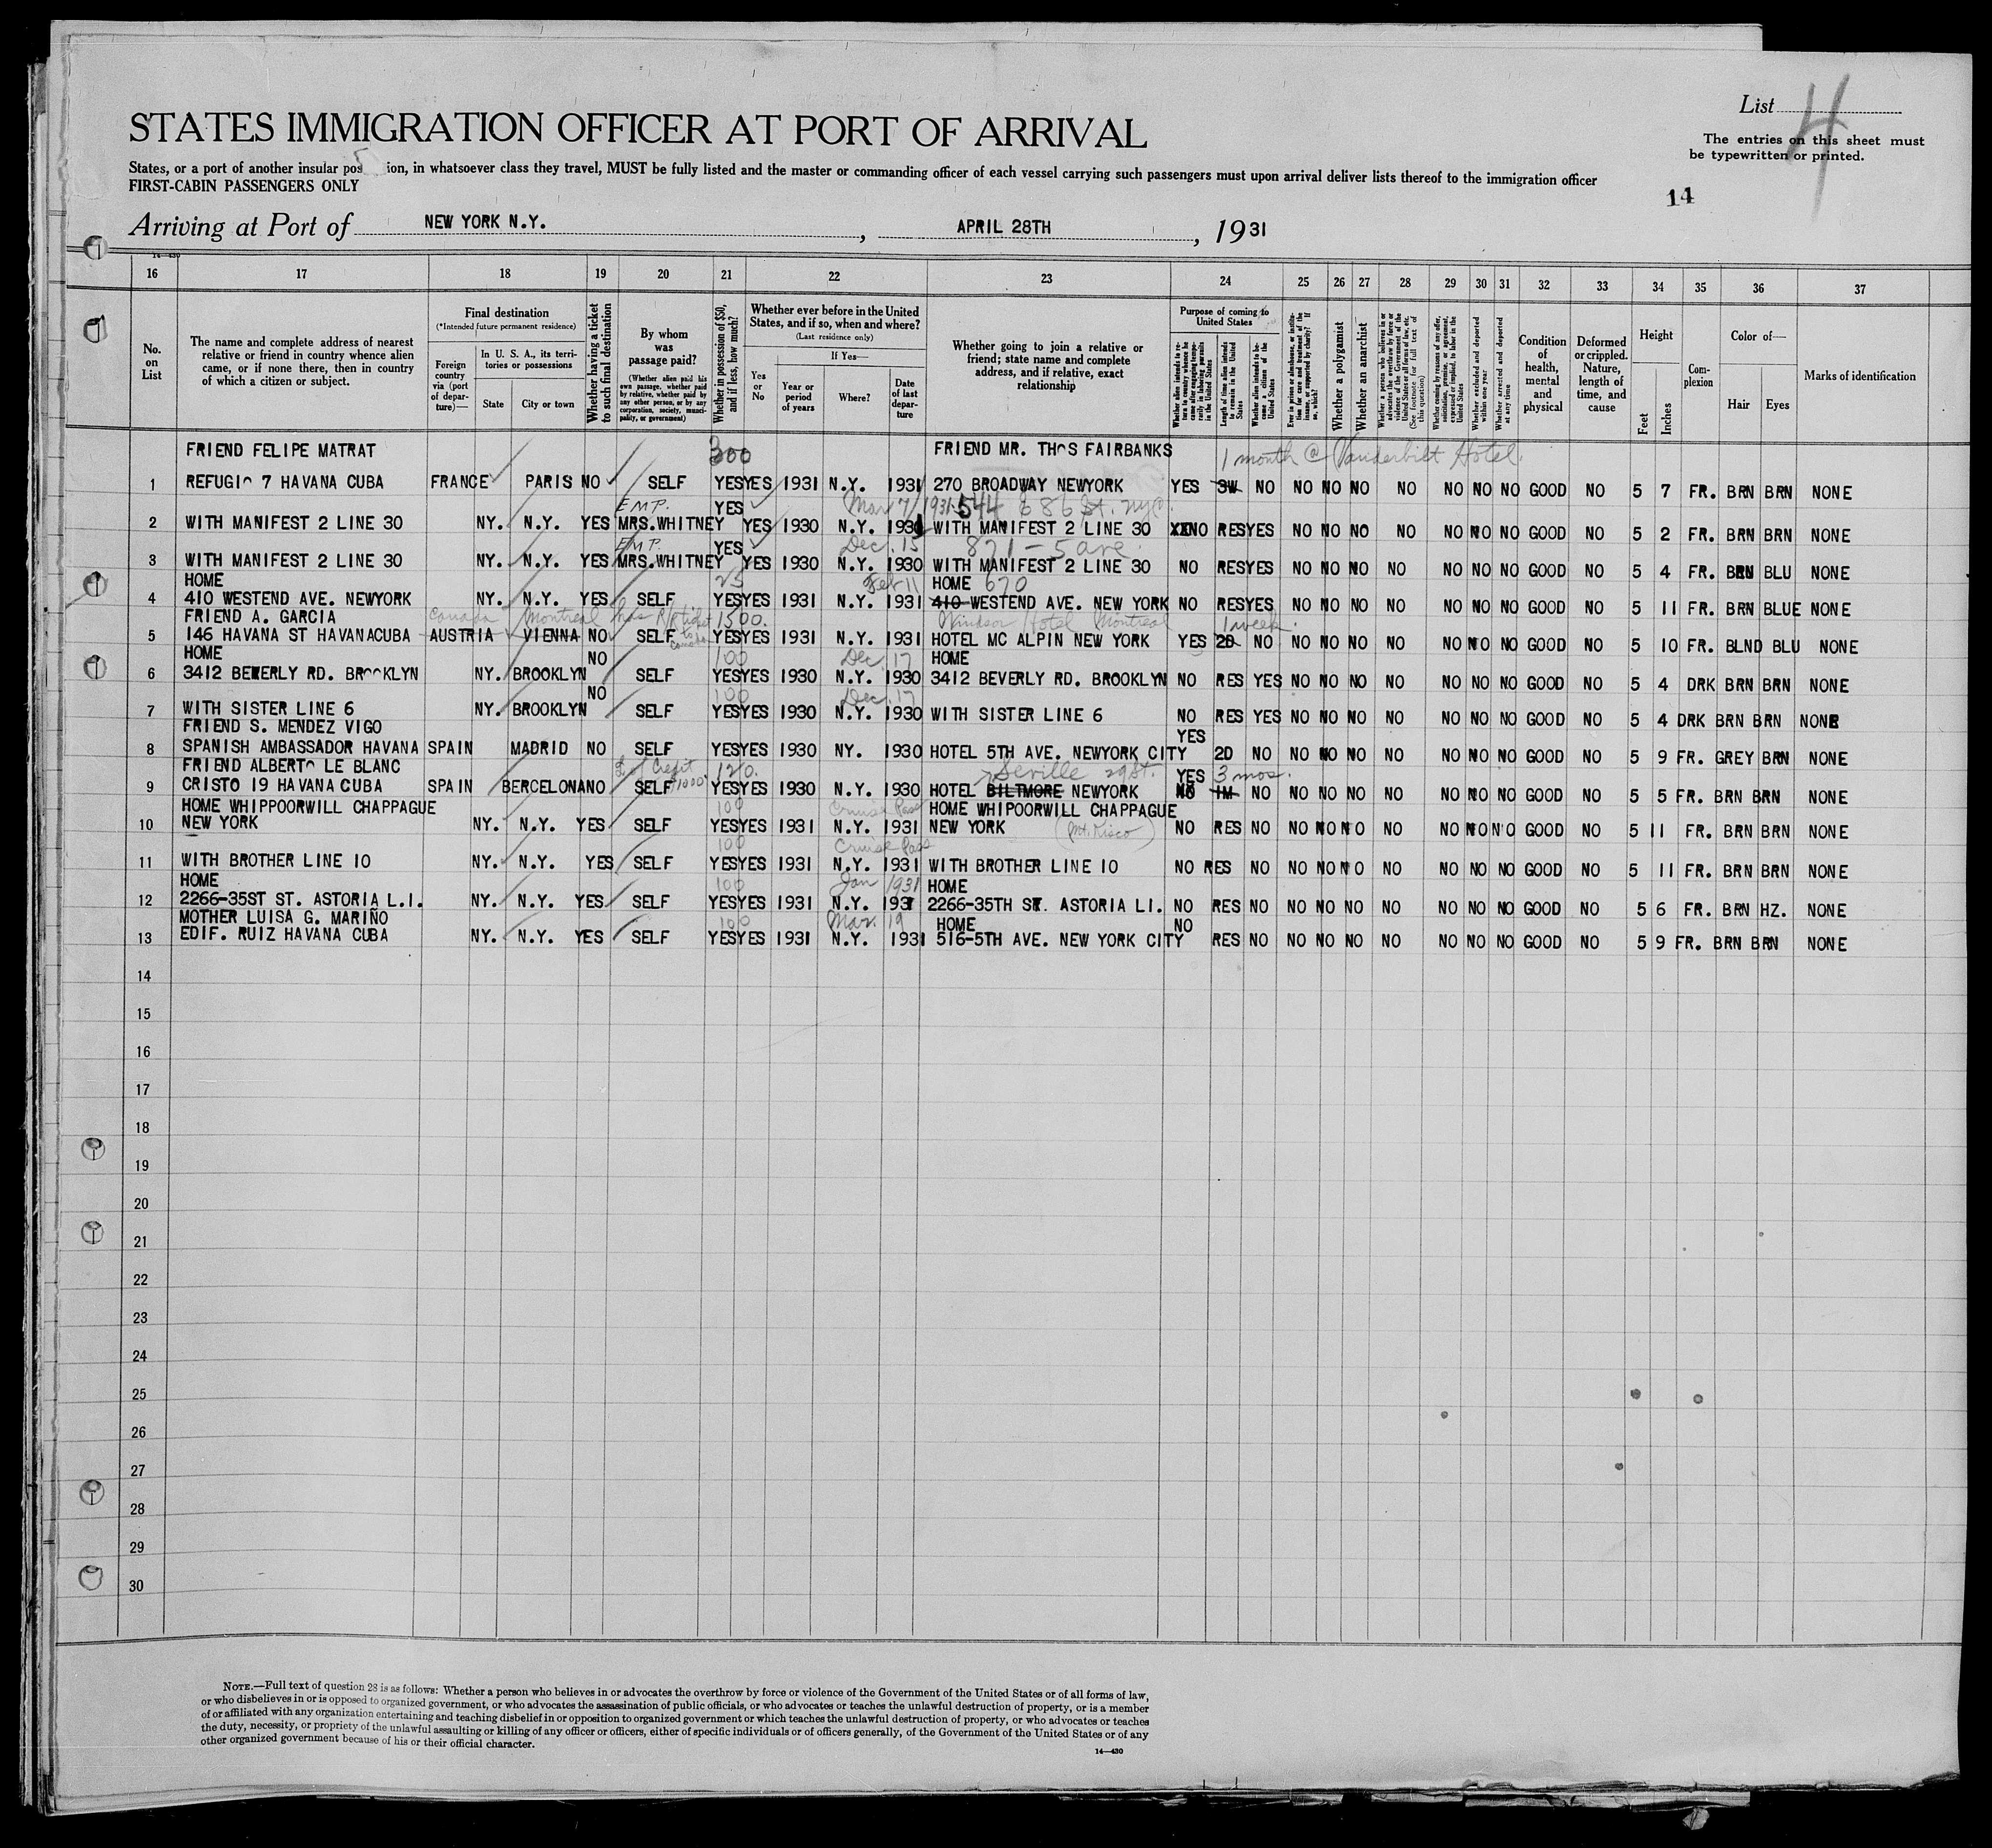 List 4
The entries on this sheet must
be typewritten or printed.
STATES IMMIGRATION OFFICER AT PORT OF ARRIVAL
States, or a port of another insular pos ion, in whatsoever class they travel, MUST be fully listed and the master or commanding officer of each vessel carrying such passengers must upon arrival deliver lists thereof to the immigration officer
FIRST-CABIN PASSENGERS ONLY
14
Arriving at Port of NEW YORK N.Y. , APRIL 28TH , 1931
14—430
16 17 18 19 20 21 22 23 24 25 26 27 28 29 30 31 32 33 34 35 36 37
No. on List
The name and complete address of nearest relative or friend in country whence alien came, or if none there, then in country of which a citizen or subject.
Final destination
(*Intended future permanent residence)
Foreign country via (port of departure)—
In U. S. A., its territories or possessions
State
City or town
Whether having a ticket to such final destination
By whom was passage paid?
(Whether alien paid his own passage, whether paid by relative, whether paid by any other person, or by any corporation, society, municipality, or government)
Whether in possession of $50, and if less, how much?
Whether ever before in the United States, and if so, when and where?
(Last residence only)
Yes or No
If Yes—
Year or period of years
Where?
Date of last departure
Whether going to join a relative or friend; state name and complete address, and if relative, exact relationship
Purpose of coming to United States
Whether alien intends to return to country whence he came after engaging temporarily in laboring pursuits in the United States
Length of time alien intends to remain in the United States
Whether alien intends to become a citizen of the United States
Ever in prison or almshouse, or institution for care and treatment of the insane, or supported by charity? If so, which?
Whether a polygamist
Whether an anarchist
Whether a person who believes in or advocates the overthrow by force or violence of the Government of the United States or all forms of law, etc. (See footnote for full text of this question)
Whether coming by reasons of any offer, solicitation, promise, or agreement, expressed or implied, to labor in the United States
Whether excluded and deported within one year
Whether arrested and deported at any time
Condition of health, mental and physical
Deformed or crippled. Nature, length of time, and cause
Height
Feet
Inches
Complexion
Color of—
Hair
Eyes
Marks of identification
FRIEND FELIPE MATRAT 300 FRIEND MR. THOS FAIRBANKS 1 month @ Vanderbilt Hotel.
1 REFUGIO 7 HAVANA CUBA FRANCE PARIS NO SELF YES YES 1931 N.Y. 1931 270 BROADWAY NEWYORK YES 3W NO NO NO NO NO NO NO NO GOOD NO 5 7 FR. BRN BRN NONE
EMP. YES Mar 7/1931 544 E 86 St. NYC
2 WITH MANIFEST 2 LINE 30 NY. N.Y. YES MRS.WHITNEY YES 1930 N.Y. 1931 WITH MANIFEST 2 LINE 30 NO RES YES NO NO NO NO NO NO NO GOOD NO 5 2 FR. BRN BRN NONE
EMP. YES Dec. 15 871-5 ave.
3 WITH MANIFEST 2 LINE 30 NY. N.Y. YES MRS.WHITNEY YES 1930 N.Y. 1930 WITH MANIFEST 2 LINE 30 NO RES YES NO NO NO NO NO NO NO GOOD NO 5 4 FR. BRN BLU NONE
HOME 25 Feb 11 HOME 670
4 410 WESTEND AVE. NEWYORK NY. N.Y. YES SELF YES YES 1931 N.Y. 1931 410 WESTEND AVE. NEW YORK NO RES YES NO NO NO NO NO NO NO GOOD NO 5 11 FR. BRN BLUE NONE
FRIEND A. GARCIA Canada Montreal has R/R ticket to Canada 1500. Windsor Hotel Montreal 1 week.
5 146 HAVANA ST HAVANACUBA AUSTRIA VIENNA NO SELF YES YES 1931 N.Y. 1931 HOTEL MC ALPIN NEW YORK YES 2D NO NO NO NO NO NO NO NO GOOD NO 5 10 FR. BLND BLU NONE
HOME NO 100 Dec 17 HOME
6 3412 BEVERLY RD. BROOKLYN NY. BROOKLYN SELF YES YES 1930 N.Y. 1930 3412 BEVERLY RD. BROOKLYN NO RES YES NO NO NO NO NO NO NO GOOD NO 5 4 DRK BRN BRN NONE
NO 100 Dec. 17
7 WITH SISTER LINE 6 NY. BROOKLYN SELF YES YES 1930 N.Y. 1930 WITH SISTER LINE 6 NO RES YES NO NO NO NO NO NO NO GOOD NO 5 4 DRK BRN BRN NONE
FRIEND S. MENDEZ VIGO YES
8 SPANISH AMBASSADOR HAVANA SPAIN MADRID NO SELF YES YES 1930 NY. 1930 HOTEL 5TH AVE. NEWYORK CITY 2D NO NO NO NO NO NO NO NO GOOD NO 5 9 FR. GREY BRN NONE
FRIEND ALBERTO LE BLANC Credit $1000 120. Seville 29 St. YES 3 mos.
9 CRISTO 19 HAVANA CUBA SPAIN BERCELONA NO SELF YES YES 1930 N.Y. 1930 HOTEL BILTMORE NEWYORK NO 1M NO NO NO NO NO NO NO NO GOOD NO 5 5 FR. BRN BRN NONE
HOME WHIPPOORWILL CHAPPAGUE 100 Cruise Pass HOME WHIPOORWILL CHAPPAGUE
10 NEW YORK NY. N.Y. YES SELF YES YES 1931 N.Y. 1931 NEW YORK (Mt. Kisco) NO RES NO NO NO NO NO NO NO NO GOOD NO 5 11 FR. BRN BRN NONE
100 Cruise Pass
11 WITH BROTHER LINE 10 NY. N.Y. YES SELF YES YES 1931 N.Y. 1931 WITH BROTHER LINE 10 NO RES NO NO NO NO NO NO NO NO GOOD NO 5 11 FR. BRN BRN NONE
HOME 100 Jan 1931 HOME
12 2266-35ST ST. ASTORIA L.I. NY. N.Y. YES SELF YES YES 1931 N.Y. 1931 2266-35TH ST. ASTORIA LI. NO RES NO NO NO NO NO NO NO NO GOOD NO 5 6 FR. BRN HZ. NONE
MOTHER LUISA G. MARIÑO 100 Mar. 19 HOME NO
13 EDIF. RUIZ HAVANA CUBA NY. N.Y. YES SELF YES YES 1931 N.Y. 1931 516-5TH AVE. NEW YORK CITY RES NO NO NO NO NO NO NO NO GOOD NO 5 9 FR. BRN BRN NONE
14
15
16
17
18
19
20
21
22
23
24
25
26
27
28
29
30
NOTE.—Full text of question 28 is as follows: Whether a person who believes in or advocates the overthrow by force or violence of the Government of the United States or of all forms of law,
or who disbelieves in or is opposed to organized government, or who advocates the assassination of public officials, or who advocates or teaches the unlawful destruction of property, or is a member
of or affiliated with any organization entertaining and teaching disbelief in or opposition to organized government or which teaches the unlawful destruction of property, or who advocates or teaches
the duty, necessity, or propriety of the unlawful assaulting or killing of any officer or officers, either of specific individuals or of officers generally, of the Government of the United States or of any
other organized government because of his or their official character.
14—430